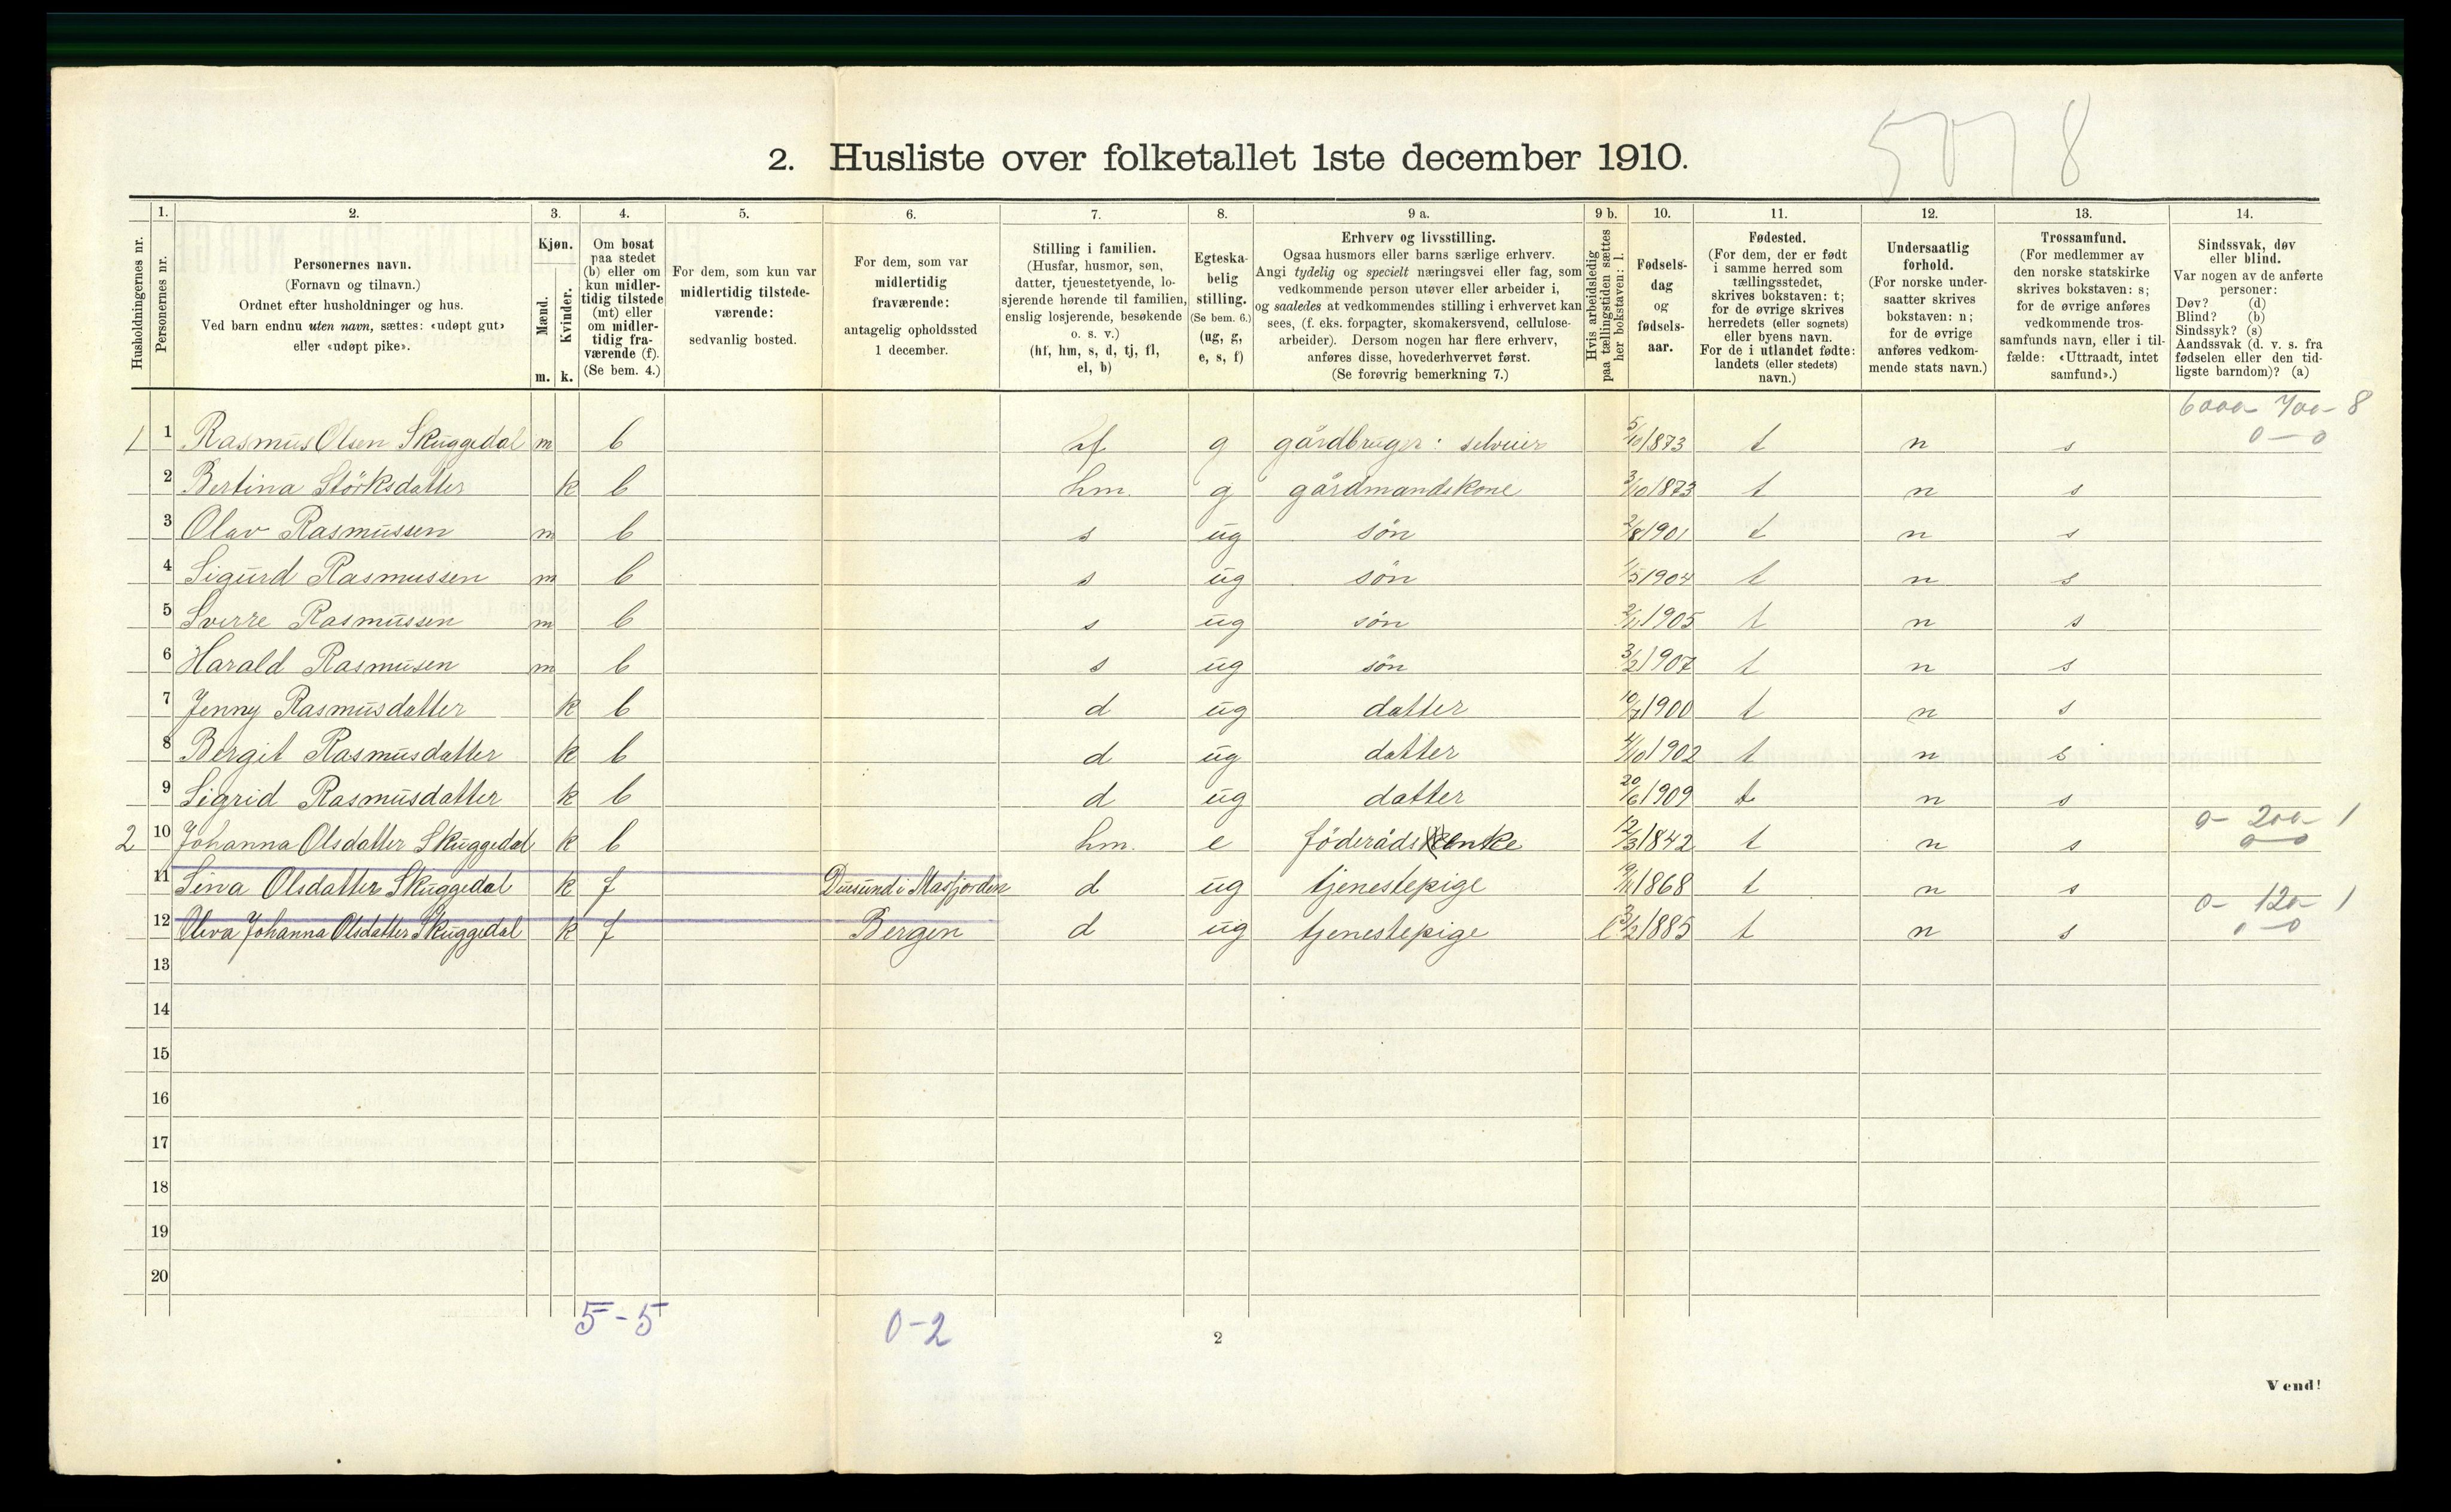 5078
2. Husliste over folketallet 1ste december 1910.
Husholdningernes nr.
1. Personernes nr.
2. Personernes navn. (Fornavn og tilnavn.) Ordnet efter husholdninger og hus. Ved barn endnu uten navn, sættes: «udøpt gut» eller «udøpt pike».
3. Kjøn. Mænd. m. Kvinder. k.
4. Om bosat paa stedet (b) eller om kun midlertidig tilstede (mt) eller om midlertidig fraværende (f). (Se bem. 4.)
5. For dem, som kun var midlertidig tilstedeværende: sedvanlig bosted.
6. For dem, som var midlertidig fraværende: antagelig opholdssted 1 december.
7. Stilling i familien. (Husfar, husmor, søn, datter, tjenestetyende, losjerende hørende til familien, enslig losjerende, besøkende o. s. v.) (hf, hm, s, d, tj, fl, el, b)
8. Egteskabelig stilling. (Se bem. 6.) (ug, g, e, s, f)
9 a. Erhverv og livsstilling. Ogsaa husmors eller barns særlige erhverv. Angi tydelig og specielt næringsvei eller fag, som vedkommende person utøver eller arbeider i, og saaledes at vedkommendes stilling i erhvervet kan sees, (f. eks. forpagter, skomakersvend, cellulosearbeider). Dersom nogen har flere erhverv, anføres disse, hovederhvervet først. (Se forøvrig bemerkning 7.)
9 b. Hvis arbeidsledig paa tællingstiden sættes her bokstaven: l.
10. Fødselsdag og fødselsaar.
11. Fødested. (For dem, der er født i samme herred som tællingsstedet, skrives bokstaven: t; for de øvrige skrives herredets (eller sognets) eller byens navn. For de i utlandet fødte: landets (eller stedets) navn.)
12. Undersaatlig forhold. (For norske undersaatter skrives bokstaven: n; for de øvrige anføres vedkommende stats navn.)
13. Trossamfund. (For medlemmer av den norske statskirke skrives bokstaven: s; for de øvrige anføres vedkommende trossamfunds navn, eller i tilfælde: «Uttraadt, intet samfund».)
14. Sindssvak, døv eller blind. Var nogen av de anførte personer: Døv? (d) Blind? (b) Sindssyk? (s) Aandssvak (d. v. s. fra fødselen eller den tidligste barndom)? (a)
6000 - 700 - 8
1 1 Rasmus Olsen Skuggedal m b hf g gårdbruger: selveier 5/10 1873 t n s 0 - 0
2 Bertina Störksdatter k b hm. g gårdmandskone 3/10 1873 t n s
3 Olav Rasmussen m b s ug sön 2/8 1901 t n s
4 Sigurd Rasmussen m b s ug sön 1/5 1904 t n s
5 Sverre Rasmussen m b s ug sön 2/11 1905 t n s
6 Harald Rasmusen m b s ug sön 3/2 1907 t n s
7 Jenny Rasmusdatter k b d ug datter 10/7 1900 t n s
8 Bergit Rasmusdatter k b d ug datter 4/10 1902 t n s
9 Sigrid Rasmusdatter k b d ug datter 20/6 1909 t n s
0 - 200 - 1
2 10 Johanna Olsdatter Skuggedal k b hm. e föderådsenke 12/3 1842 t n s 0 - 0
11 Sina Olsdatter Skuggedal k f Duesund i Masfjorden d ug tjenestepige 19/11 1868 t n s
0 - 120 - 1
12 Oleva Johanna Olsdatter Skuggedal k f Bergen d ug tjenestepige l 3/2 1885 t n s 0 - 0
13
14
15
16
17
18
19
20
5 - 5 0 - 2
2
Vend!